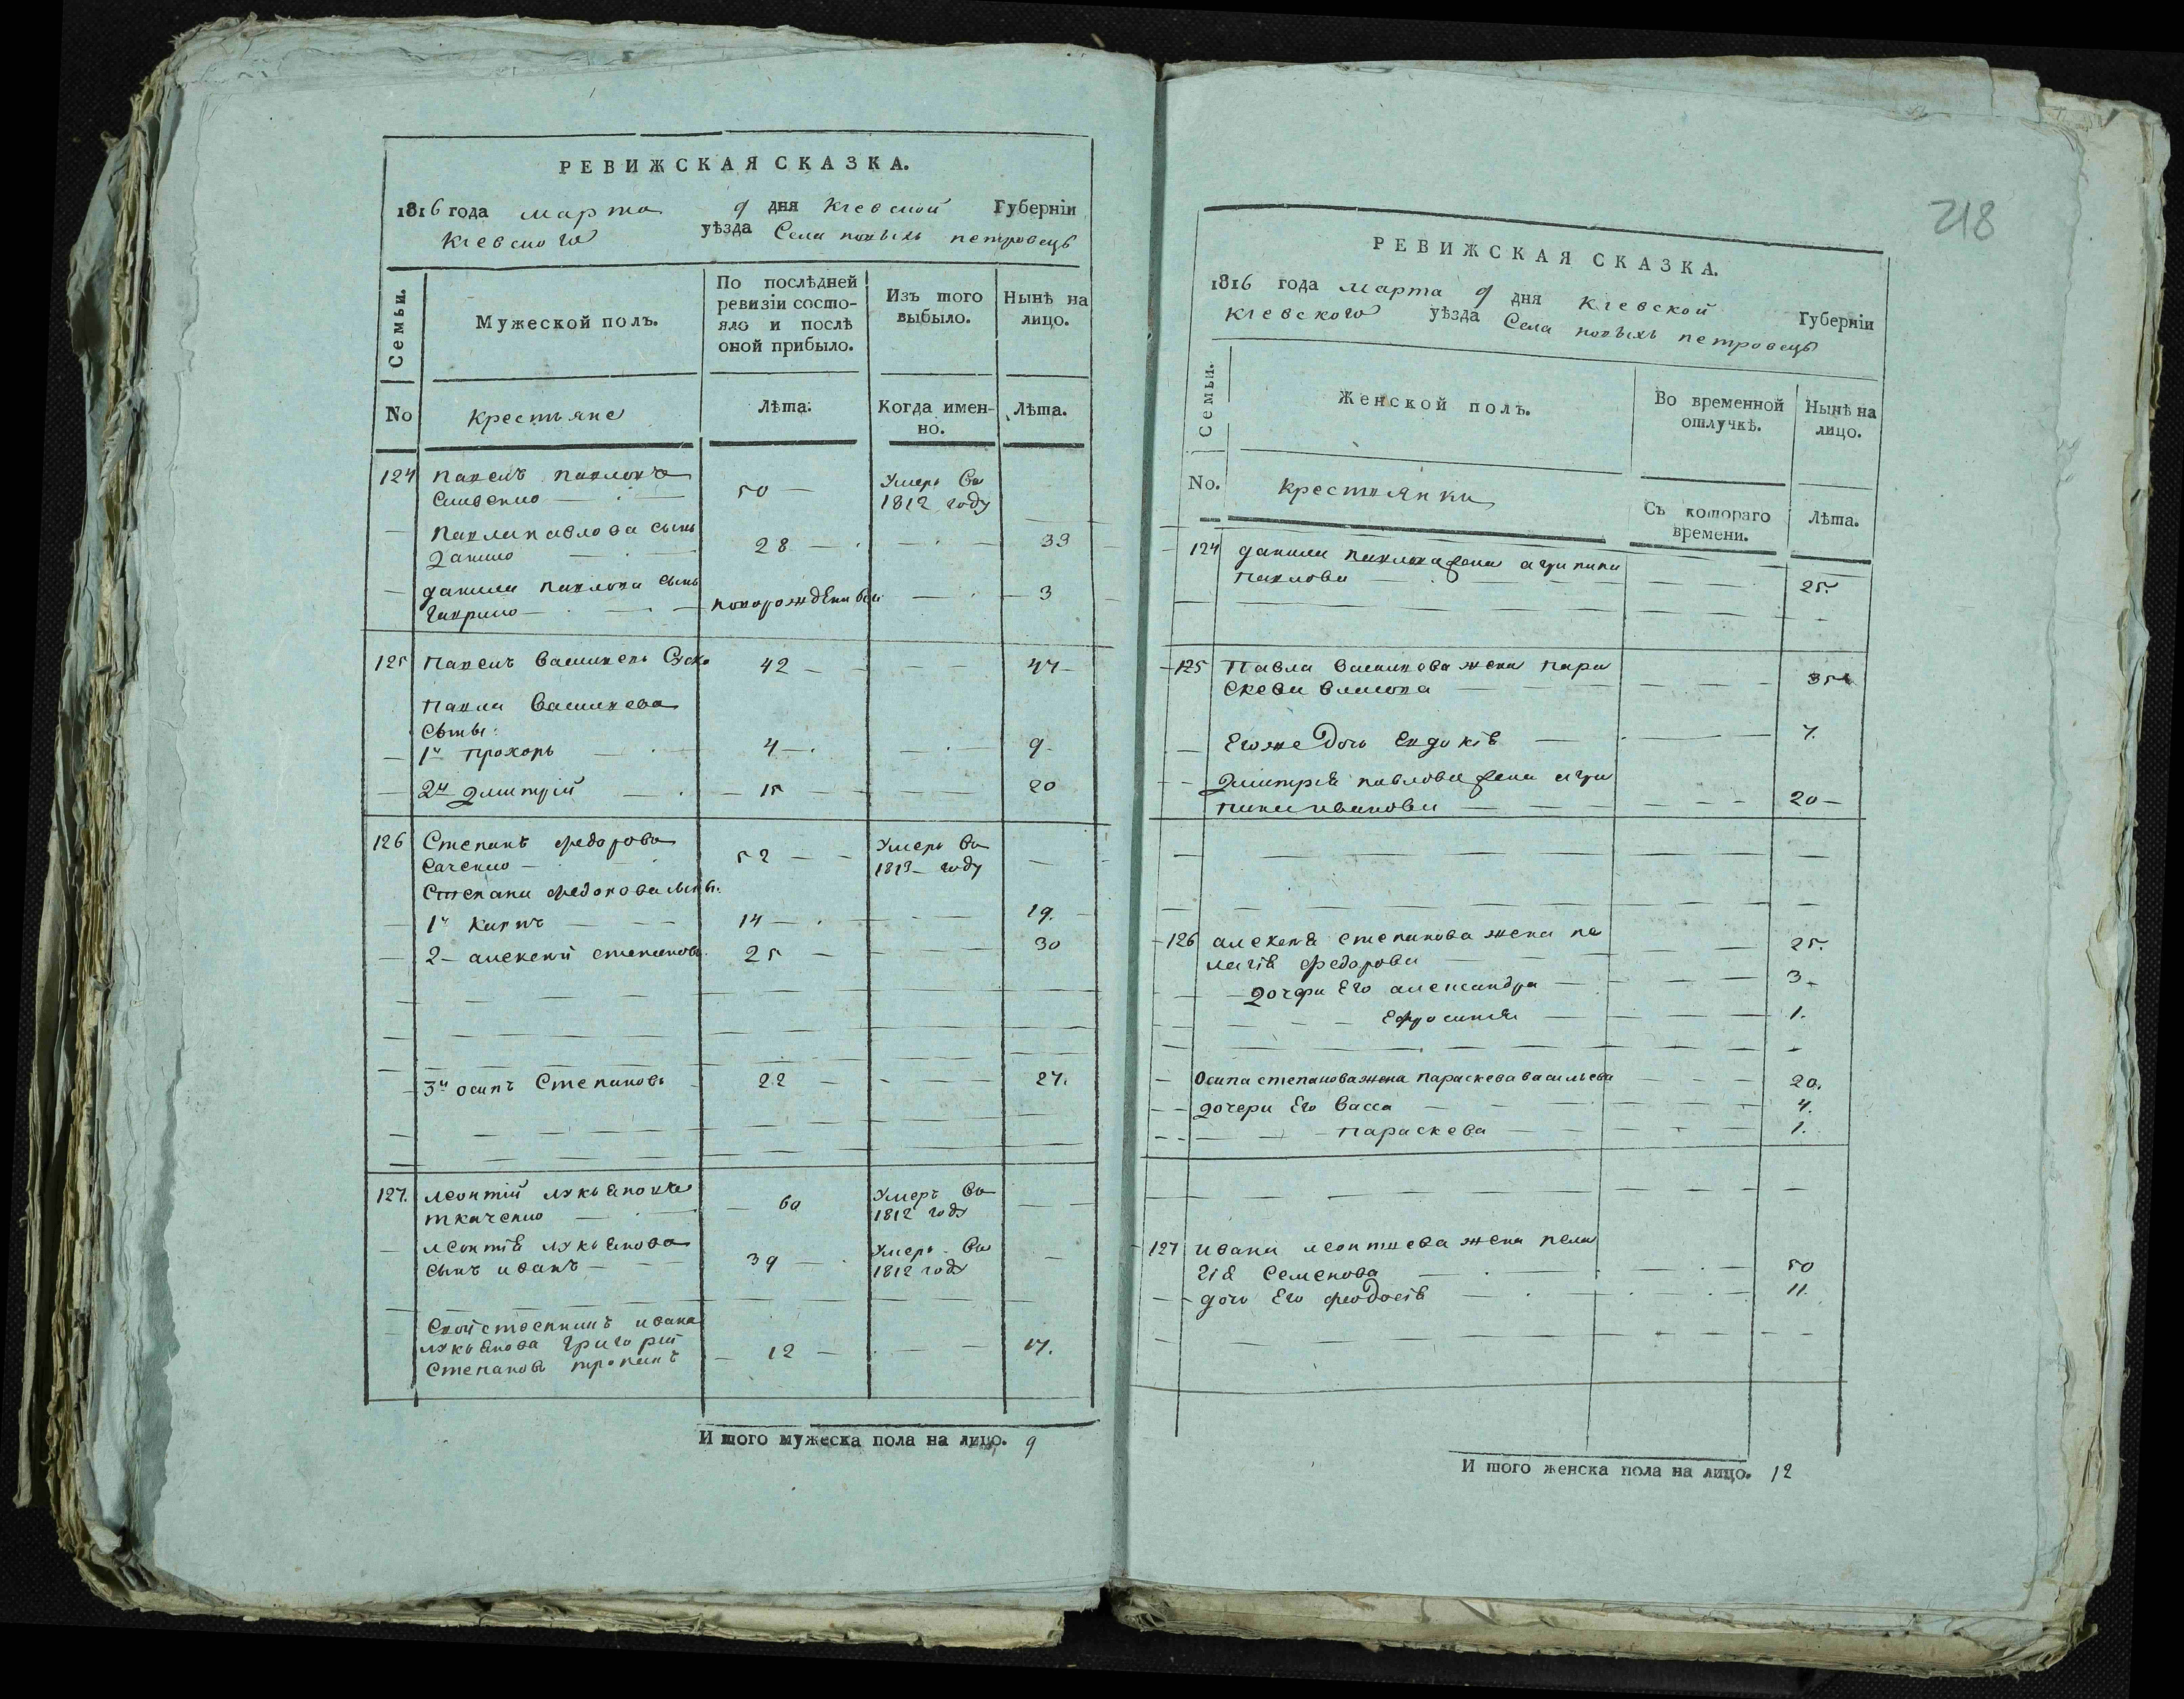 РЕВИЖСКАЯ СКАЗКА.
1816 года марта 9 дня Кіевской Губерніи
Кіевского уѣзда Села новыхъ петровецъ
Семьи.
Мужеской полъ.
По послѣдней
ревизіи состо-
яло и послѣ
оной прибыло.
Изъ того
выбыло.
Нынѣ на
лицо.
No
крестьяне
Лѣта.
Когда имен-
но.
Лѣта.
124 павелъ павловъ
50 Умеръ Въ
1812 году
павла павлова сынъ
данило 28 33
данила павлова сынъ
гаврило новорожденный 3
125 павелъ василевъ 42 47
павла василева
сыны:
1й прохоръ 4 9
2й дмитрій 15 20
126 Степанъ федоровъ
52 Умеръ Въ
1813 году
Степана федорова сыны.
1й карпъ 14 19.
2 алексей степановъ 25 30
3й осипъ Степановъ 22 27.
127. леонтій лукьяновъ
ткаченко 60 Умеръ Въ
1812 году
леонтія лукьянова
сынъ иванъ 39 Умеръ Въ
1812 году
Свойственникъ ивана
лукьянова григорій
Степановъ 12 17.
И того мужеска пола на лицо. 9
218
РЕВИЖСКАЯ СКАЗКА.
1816 года марта 9 дня кіевской Губерніи
кіевского уѣзда Села новыхъ петровецъ
Семьи.
Женской полъ.
Во временной
отлучкѣ.
Нынѣ на
лицо.
No.
крестьянки
Съ котораго
времени.
Лѣта.
124 данила павлова жена агрипина
павлова 25.
125 Павла василева жена пара
скева 35
Егоже дочь евдокія 7.
дмитрія павлова жена агри
пина иванова 20
126 алексея степанова жена пе
лагія федорова 25.
дочери Его александра 3
Ефросинія 1.
Осипа степанова жена параскева васильева 20.
дочери Его васса 4.
параскева 1.
127 ивана леонтиева жена пела
гія семенова 50
дочь Его феодосія 11.
И того женска пола на лицо. 12